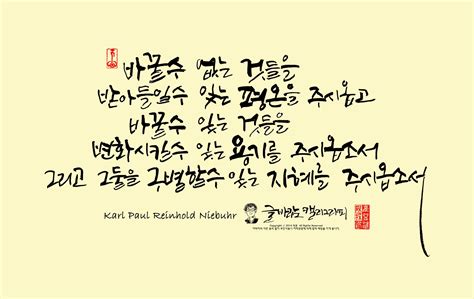 바꿀수 없는 것들을
받아들일수 있는 평온을 주시옵고
바꿀수 있는 것들을
변화시킬수 있는 용기를 주시옵소서
그리고 그둘을 구별할수 있는 지혜를 주시옵소서
Karl Paul Reinhold Niebuhr
글씨랑 캘리그라피